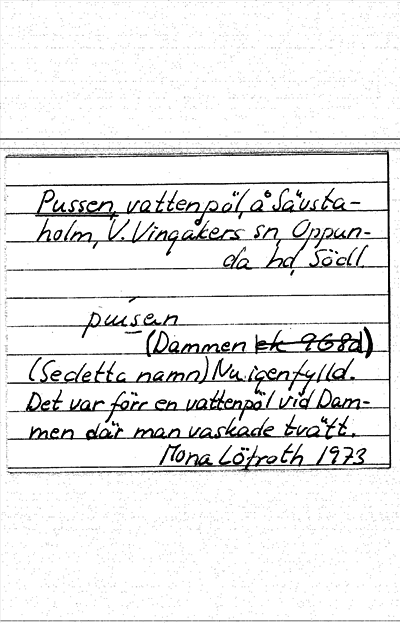 Pussen, vattenpöl, å Sävsta-
holm, V. Vingåkers sn, Oppun-
da hd, Södl.
pusen
(Dammen ek 9G8d)
(Se detta namn) Nu igenfylld.
Det var förr en vattenpöl vid Dam-
men där man vaskade tvätt.
Mona Löfroth 1973